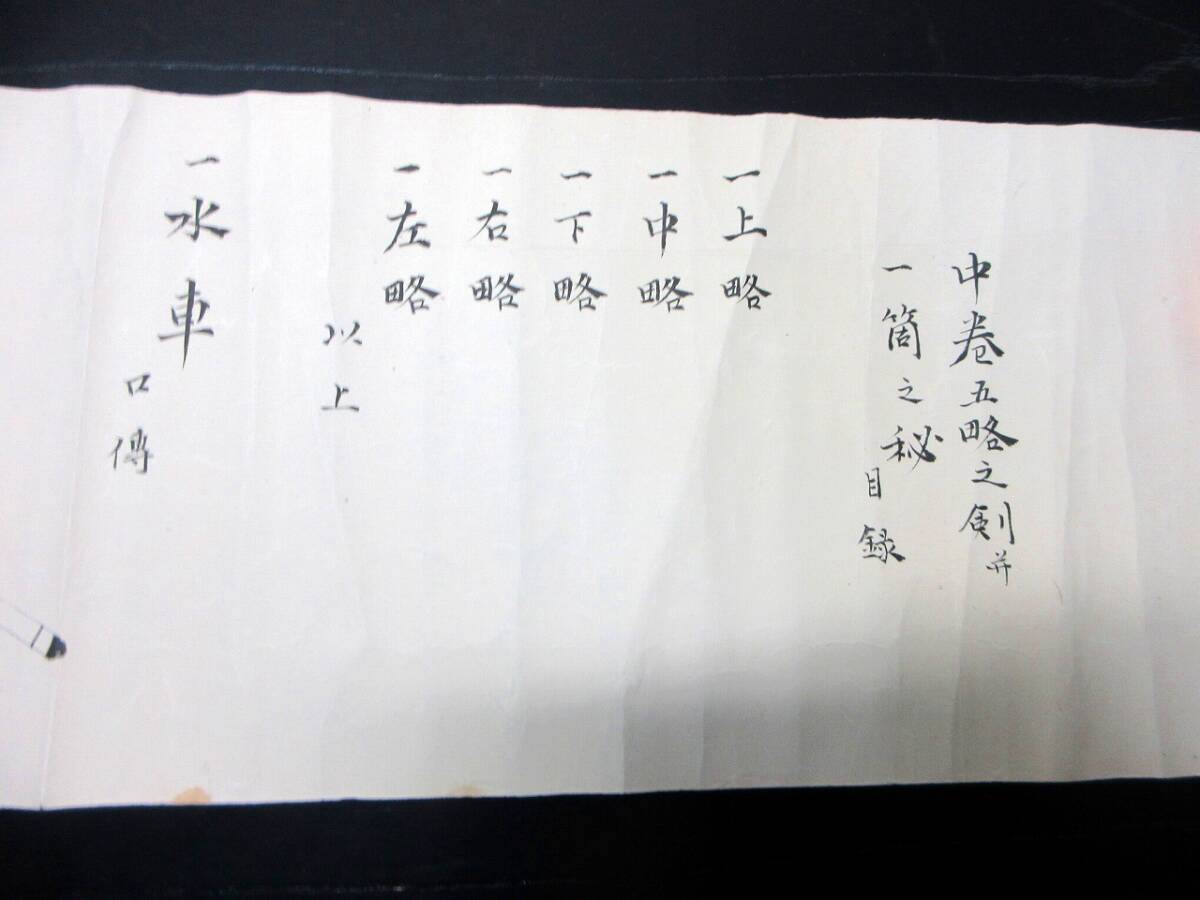 中巻五略之剣并
一箇之秘
目録
一上略
一中略
一下略
一右略
一左略
以上
一水車
口傳